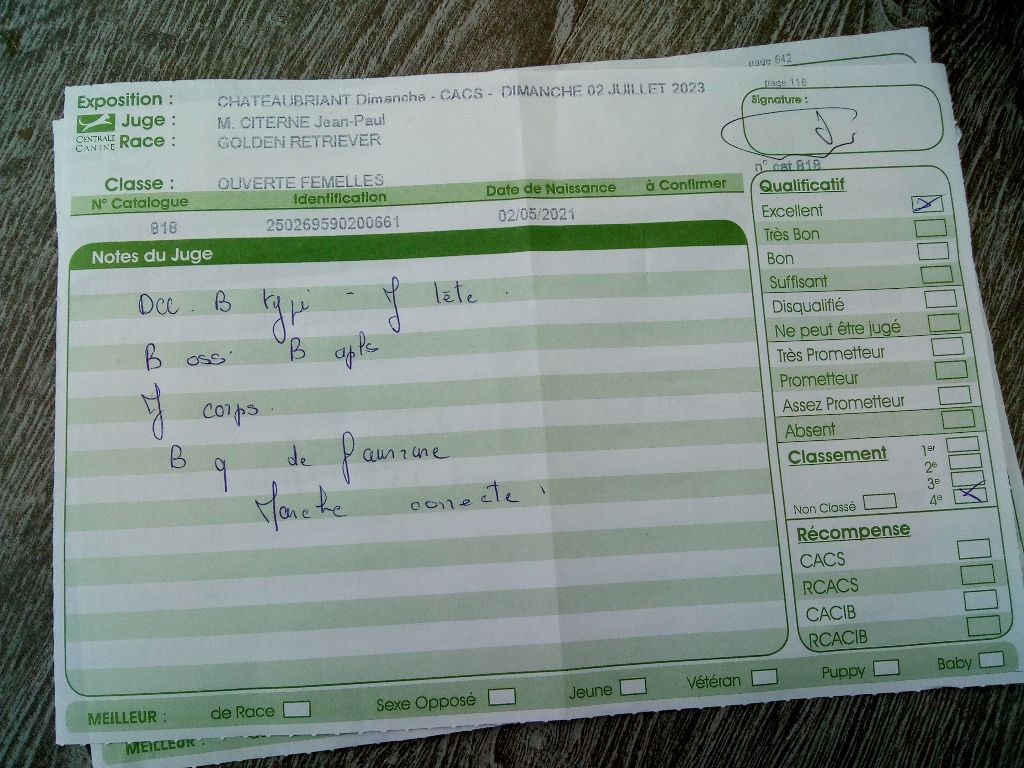 page 642
page 116
Exposition : CHATEAUBRIANT Dimanche - CACS - DIMANCHE 02 JUILLET 2023
Signature :
CENTRALE CANINE
Juge : M. CITERNE Jean-Paul
Race : GOLDEN RETRIEVER
n° cat 818
Classe : OUVERTE FEMELLES
N° Catalogue Identification Date de Naissance à Confirmer
818 250269590200661 02/05/2021
Notes du Juge
B typé - J tête.
B oss. B apls
J corps.
B q de
Marche correcte.
Qualificatif
Excellent
Très Bon
Bon
Suffisant
Disqualifié
Ne peut être jugé
Très Prometteur
Prometteur
Assez Prometteur
Absent
Classement 1er
2e
3e
Non Classé 4e
Récompense
CACS
RCACS
CACIB
RCACIB
MEILLEUR : de Race Sexe Opposé Jeune Vétéran Puppy Baby
MEILLEUR :